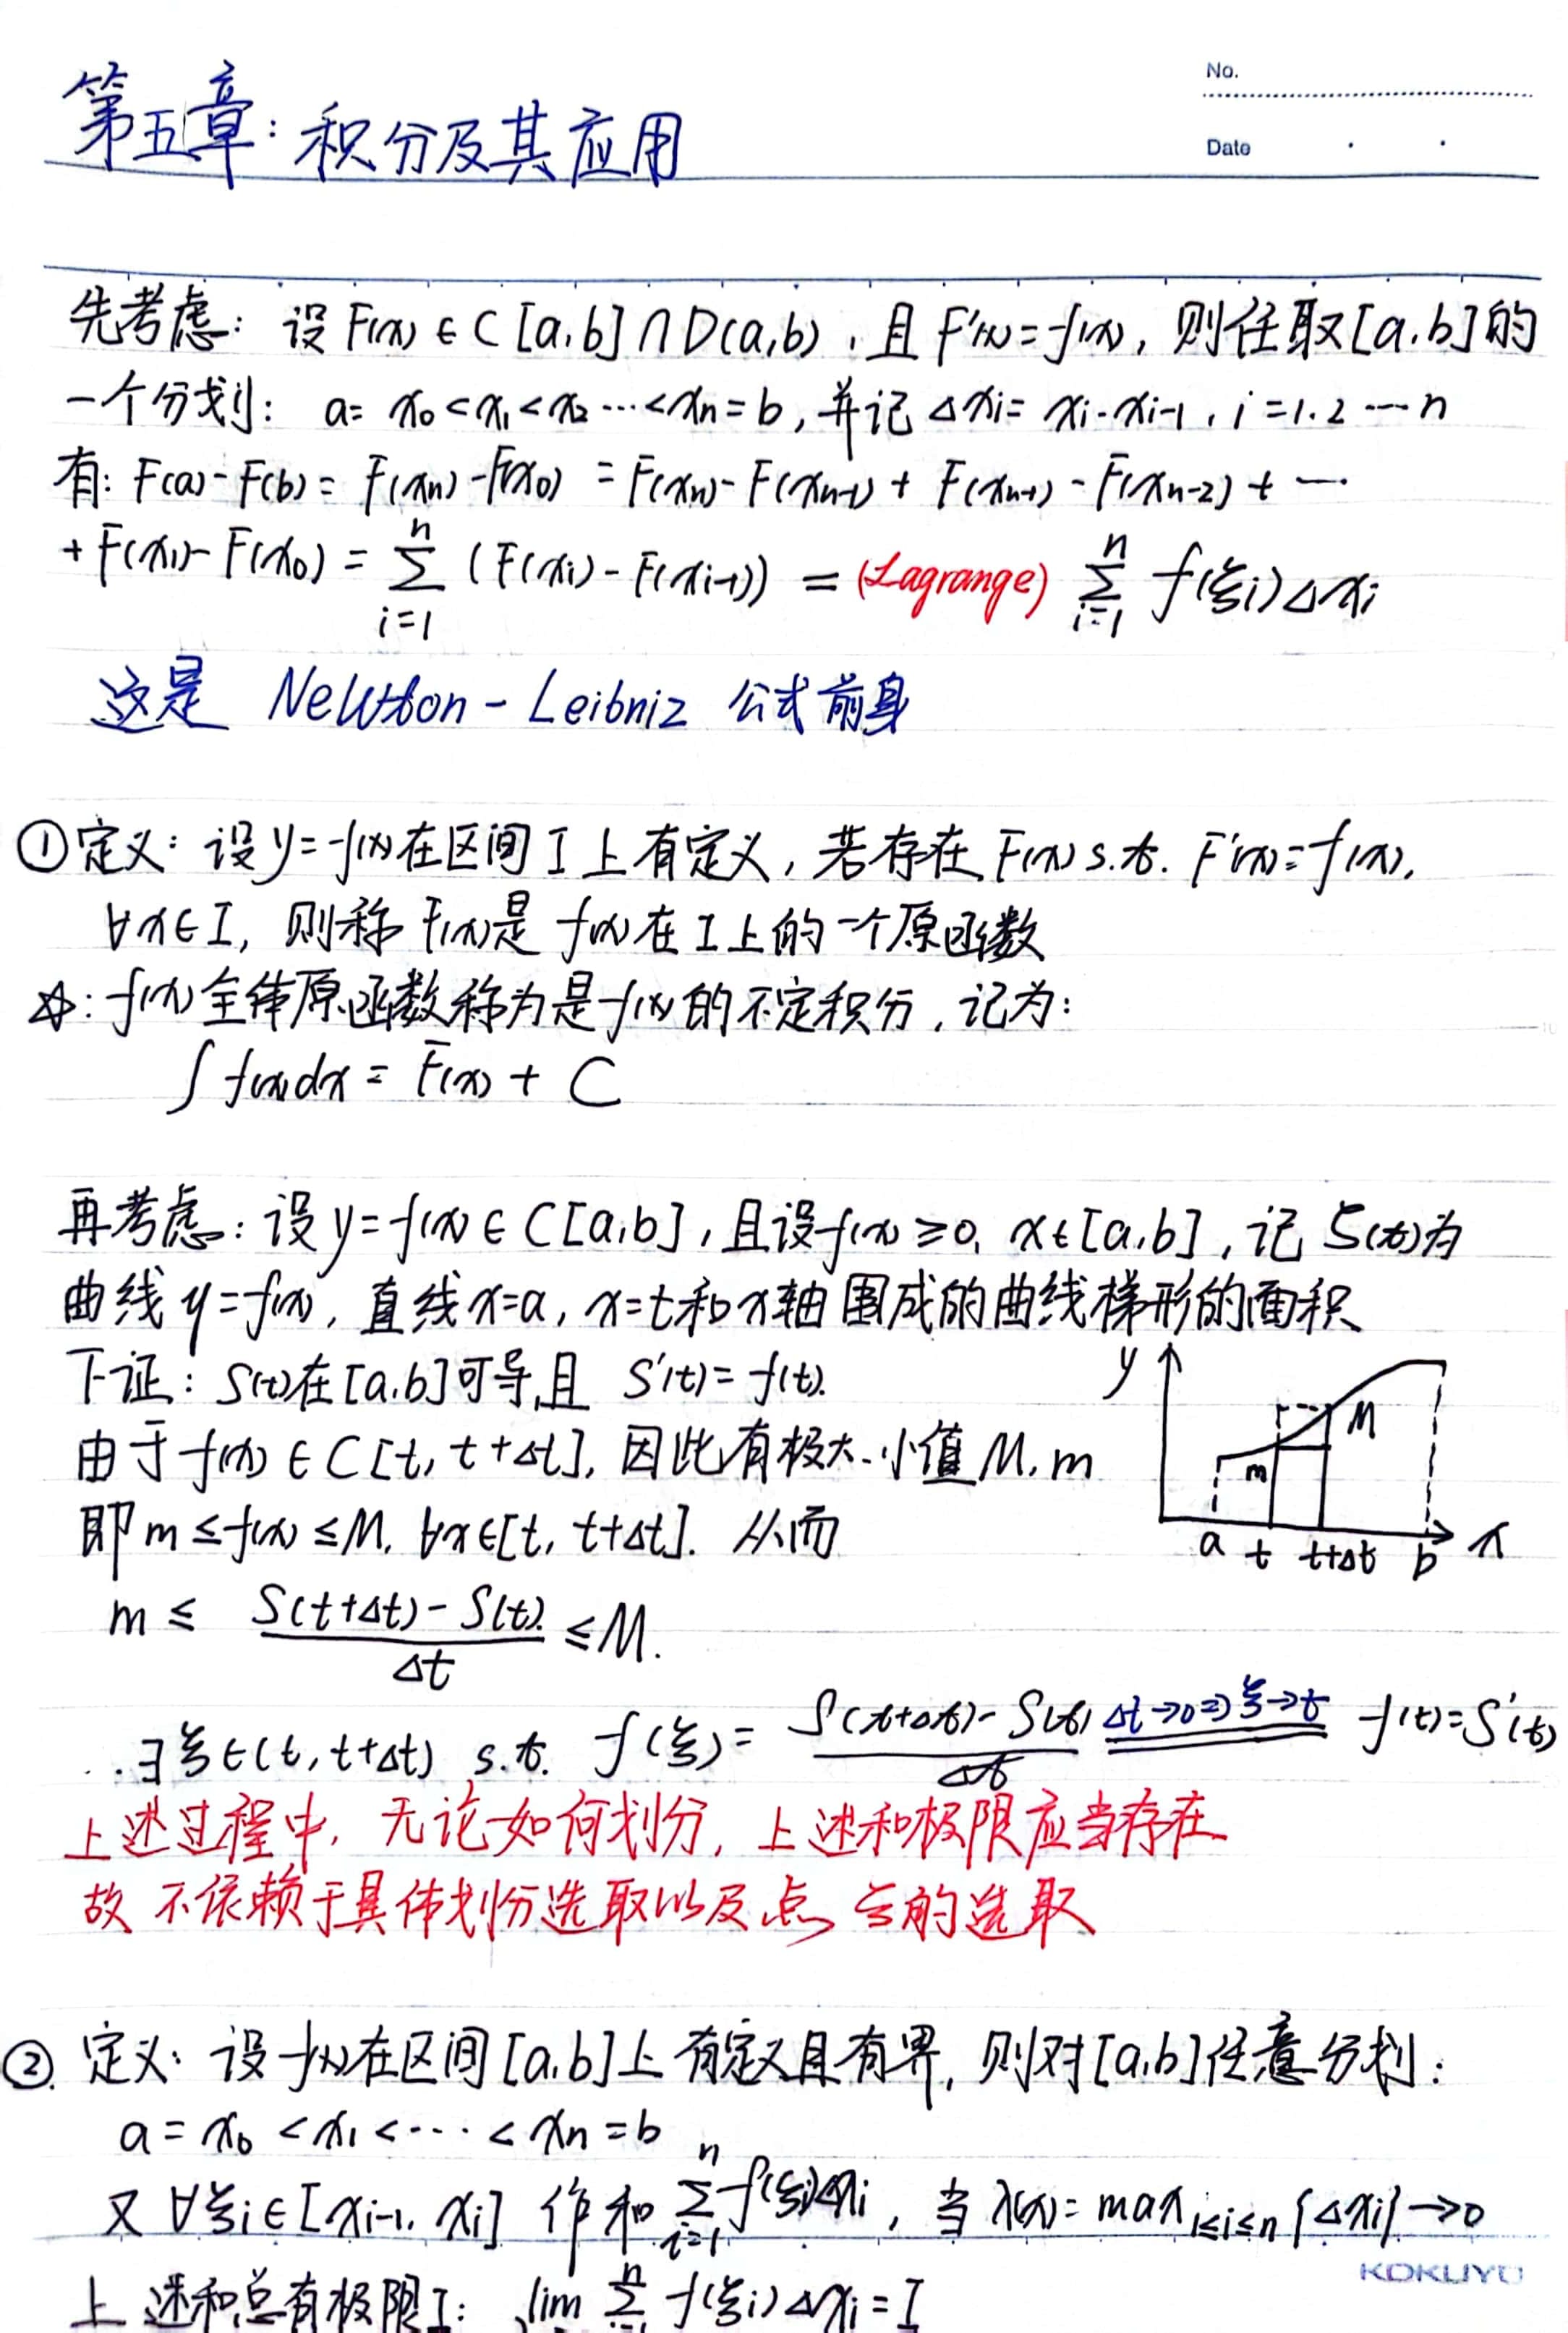 No.
Date
第五章: 积分及其应用
先考虑: 设 F(x) ∈ C [a,b] ∩ D(a,b), 且 F'(x) = f(x), 则任取 [a,b] 的
一个分划: a = x₀ < x₁ < x₂ ⋯ < xₙ = b, 并记 Δxᵢ = xᵢ - xᵢ₋₁, i = 1.2 ⋯ n
有: F(a) - F(b) = F(xₙ) - F(x₀) = F(xₙ) - F(xₙ₋₁) + F(xₙ₋₁) - F(xₙ₋₂) + ⋯
+ F(x₁) - F(x₀) = ∑ᵢ₌₁ⁿ (F(xᵢ) - F(xᵢ₋₁)) = (Lagrange) ∑ᵢ₌₁ⁿ f(ξᵢ)Δxᵢ
这是 Newton - Leibniz 公式前身
① 定义: 设 y = f(x) 在区间 I 上有定义, 若存在 F(x) s.t. F'(x) = f(x),
∀x∈I, 则称 F(x) 是 f(x) 在 I 上的一个原函数
☆: f(x) 全体原函数称为是 f(x) 的不定积分, 记为:
∫ f(x)dx = F(x) + C
再考虑: 设 y = f(x) ∈ C[a,b], 且设 f(x) ≥ 0, x∈[a,b], 记 S(t) 为
曲线 y = f(x), 直线 x=a, x=t 和 x轴 围成的曲线梯形的面积
下证: S(t) 在 [a,b] 可导, 且 S'(t) = f(t).
由于 f(x) ∈ C [t, t+Δt], 因此有极大.小值 M, m
即 m ≤ f(x) ≤ M, ∀x∈[t, t+Δt]. 从而
y
M
m
a t t+Δt b x
m ≤ (S(t+Δt) - S(t))/Δt ≤ M.
∴ ∃ ξ ∈ (t, t+Δt) s.t. f(ξ) = (S(t+Δt) - S(t))/Δt Δt→0 ⇒ ξ→t f(t) = S'(t)
上述过程中, 无论如何划分, 上述和极限应当存在
故 不依赖于具体划分选取以及点 ξ 的选取
②. 定义: 设 f(x) 在区间 [a,b] 上 有定义且有界, 则对 [a,b] 任意分划:
a = x₀ < x₁ < ⋯ < xₙ = b
又 ∀ξᵢ ∈ [xᵢ₋₁, xᵢ] 作和 ∑ᵢ₌₁ⁿ f(ξᵢ)Δxᵢ, 当 λ(x) = max₁≤ᵢ≤ₙ {Δxᵢ} → 0
上述和总有极限 I: lim ∑ᵢ₌₁ⁿ f(ξᵢ)Δxᵢ = I
KOKUYO